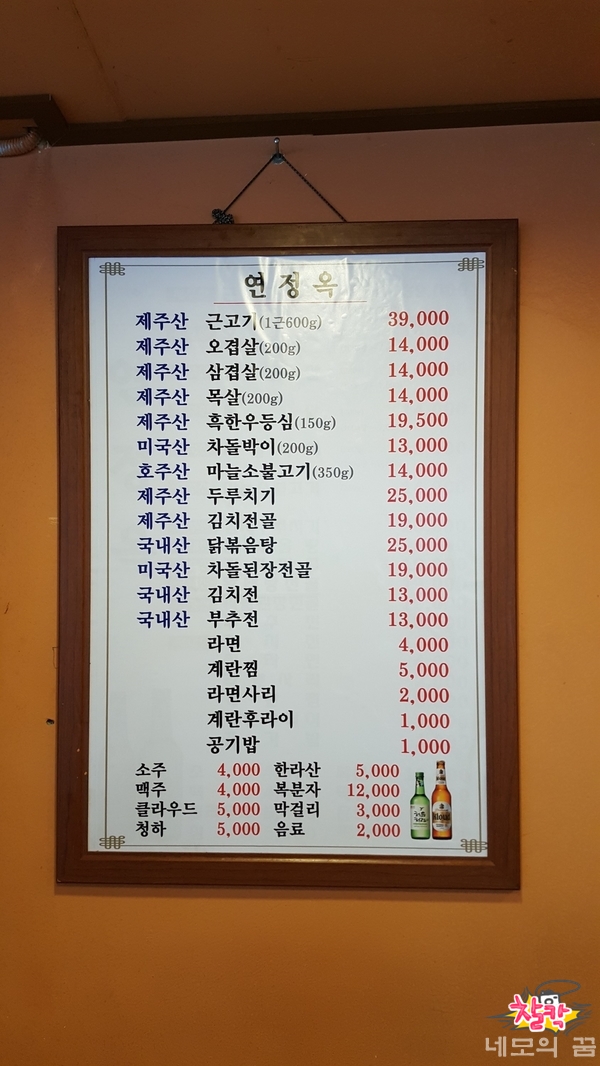 연정옥
제주산 근고기(1근600g) 39,000
제주산 오겹살(200g) 14,000
제주산 삼겹살(200g) 14,000
제주산 목살(200g) 14,000
제주산 흑한우등심(150g) 19,500
미국산 차돌박이(200g) 13,000
호주산 마늘소불고기(350g) 14,000
제주산 두루치기 25,000
제주산 김치전골 19,000
국내산 닭볶음탕 25,000
미국산 차돌된장전골 19,000
국내산 김치전 13,000
국내산 부추전 13,000
라면 4,000
계란찜 5,000
라면사리 2,000
계란후라이 1,000
공기밥 1,000
소주 4,000 한라산 5,000
맥주 4,000 복분자 12,000
클라우드 5,000 막걸리 3,000
청하 5,000 음료 2,000
찰칵
네모의 꿈